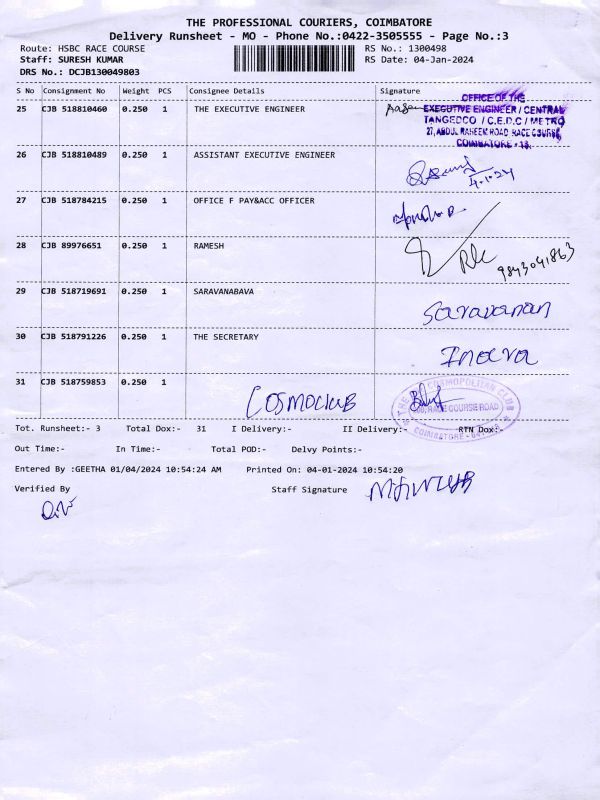 THE PROFESSIONAL COURIERS, COIMBATORE
Delivery Runsheet - MO - Phone No.:0422-3505555 - Page No.:3
Route: HSBC RACE COURSE
RS No.: 1300498
Staff: SURESH KUMAR
RS Date: 04-Jan-2024
DRS No.: DCJB130049803
S No Consignment No Weight PCS Consignee Details Signature
25 CJB 518810460 0.250 1 THE EXECUTIVE ENGINEER
OFFICE OF THE
EXECUTIVE ENGINEER / CENTRAL
TANGEDCO / C.E.D.C / METRO
27, ABDUL RAHEEM ROAD, RACE COURSE,
COIMBATORE - 18.
26 CJB 518810489 0.250 1 ASSISTANT EXECUTIVE ENGINEER
4.1.24
27 CJB 518784215 0.250 1 OFFICE F PAY&ACC OFFICER
28 CJB 89976651 0.250 1 RAMESH
9843041863
29 CJB 518719691 0.250 1 SARAVANABAVA
Saravanan
30 CJB 518791226 0.250 1 THE SECRETARY
31 CJB 518759853 0.250 1
COSMOCLUB
THE COSMOPOLITAN CLUB
RACE COURSE ROAD
COIMBATORE
Tot. Runsheet:- 3 Total Dox:- 31 I Delivery:- II Delivery:- RTN Dox:-
Out Time:- In Time:- Total POD:- Delvy Points:-
Entered By :GEETHA 01/04/2024 10:54:24 AM Printed On: 04-01-2024 10:54:20
Verified By Staff Signature